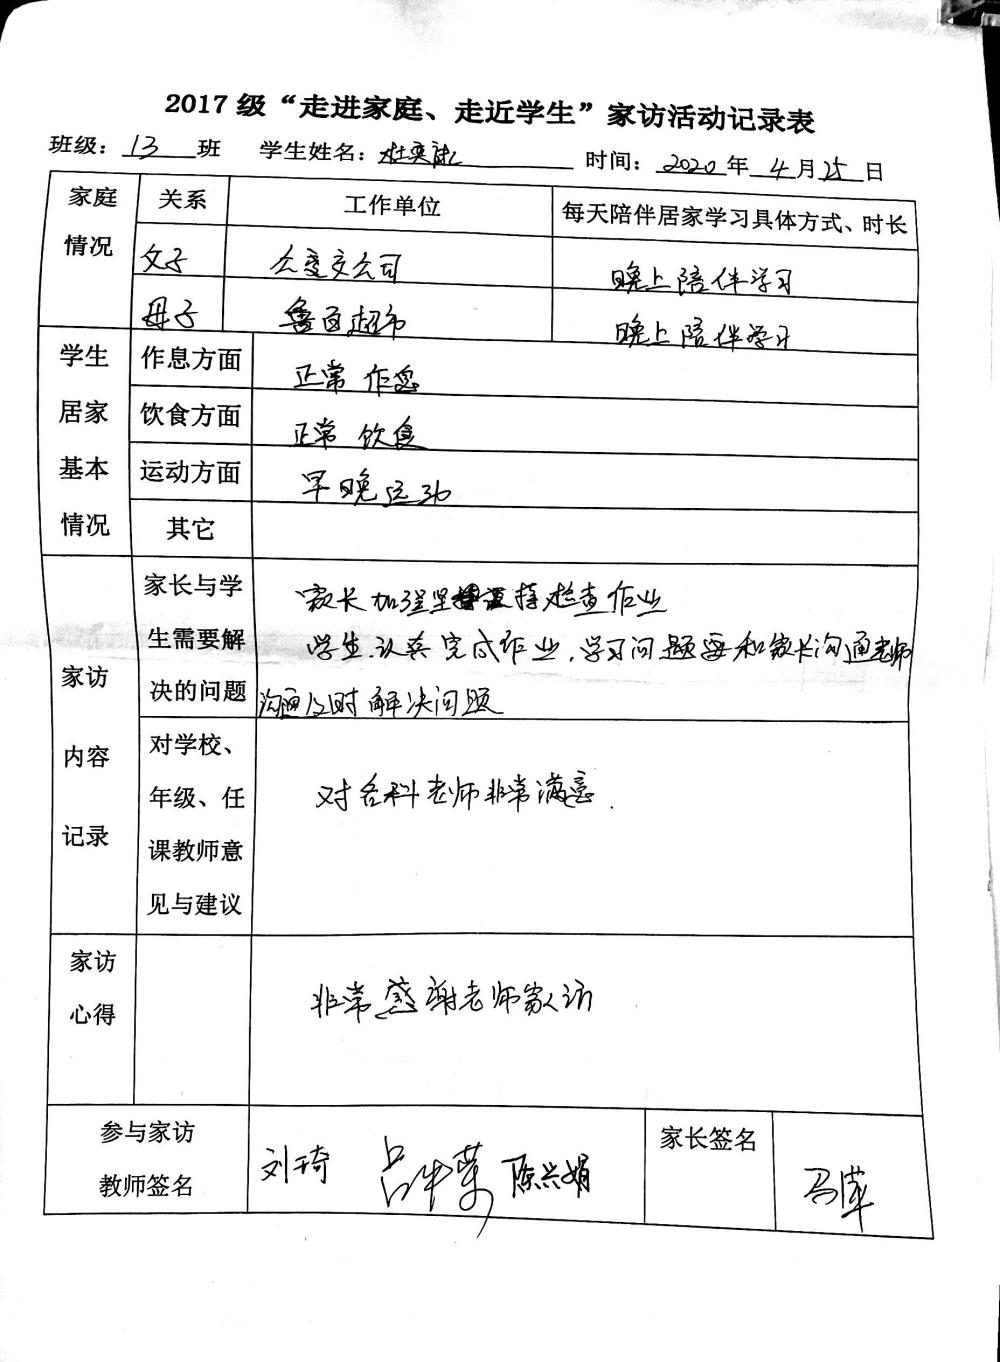 2017 级“走进家庭、走近学生”家访活动记录表
班级：13班 学生姓名：杜奕 时间：2020年4月25日
家庭情况 关系 工作单位 每天陪伴居家学习具体方式、时长
父子 公交公司 晚上陪伴学习
母子 鲁百超市 晚上陪伴学习
学生居家基本情况
作息方面 正常 作息
饮食方面 正常 饮食
运动方面 早晚运动
其它
家访内容记录
家长与学生需要解决的问题
家长加强坚持检查作业
学生认真完成作业，学习问题要和家长沟通老师
沟通及时解决问题
对学校、年级、任课教师意见与建议
对各科老师非常满意.
家访心得
非常感谢老师家访
参与家访教师签名 刘琦 陈兴娟 家长签名 冯萍